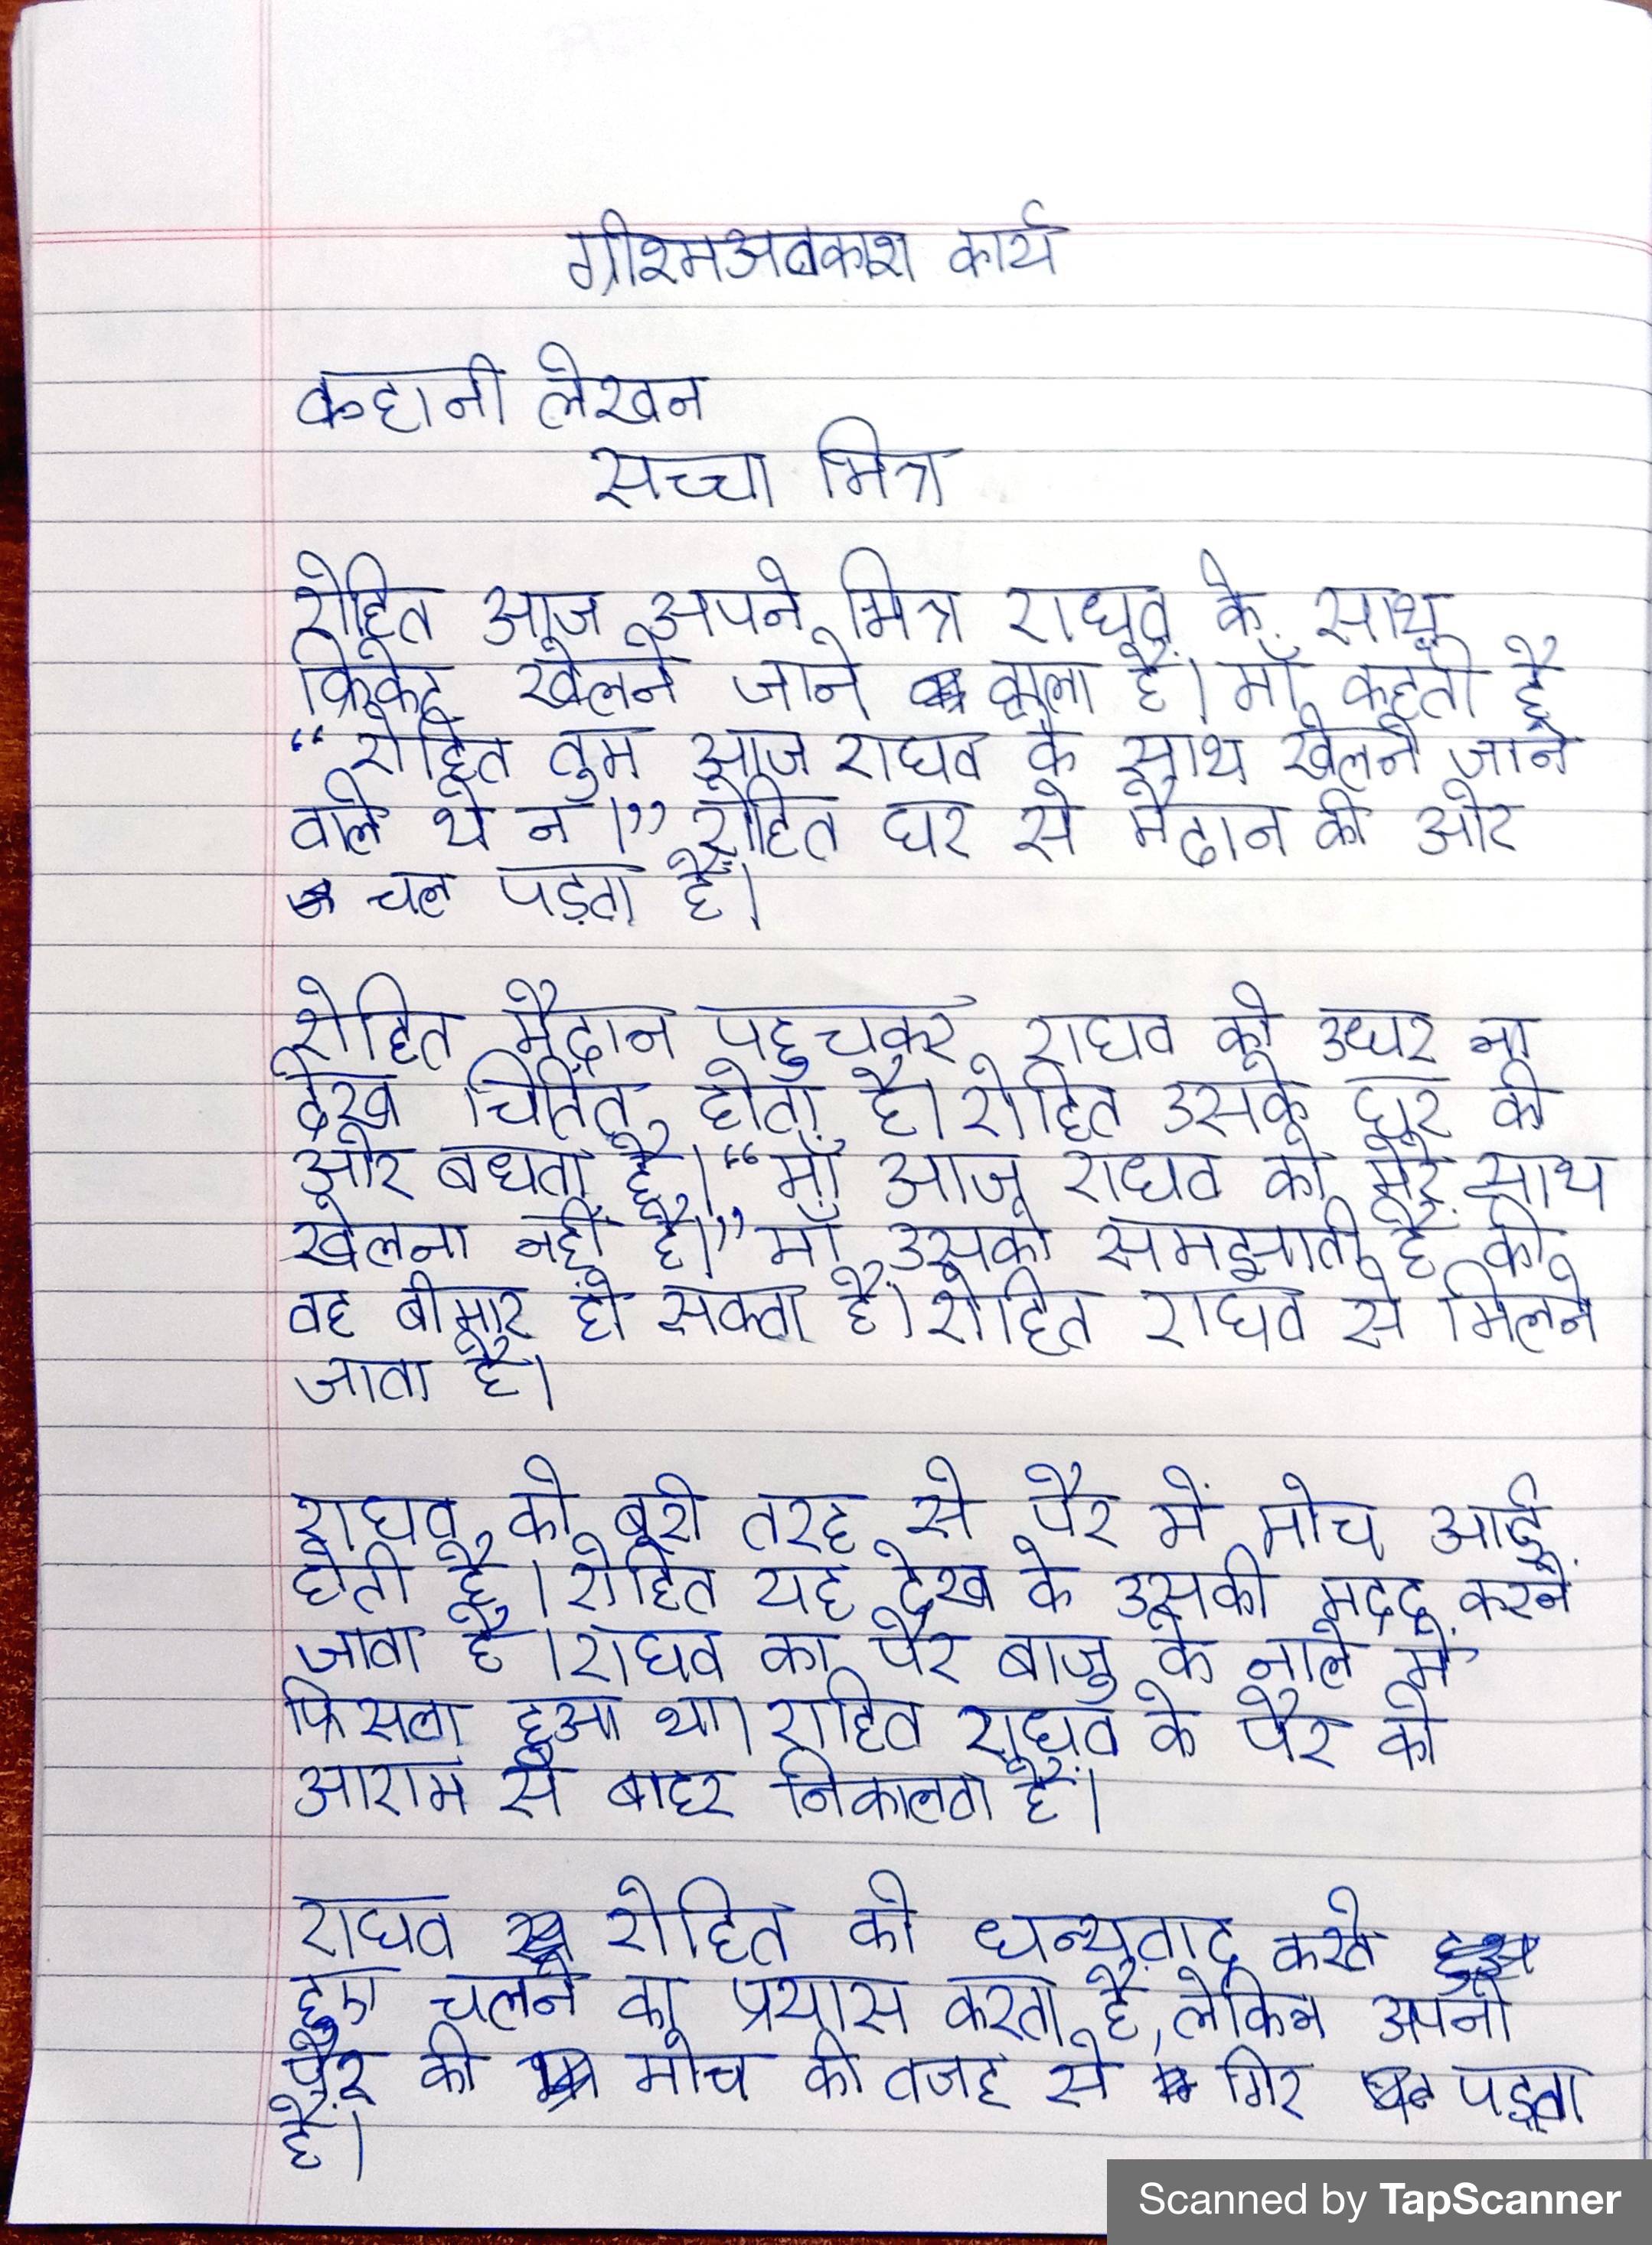 ग्रीश्मअवकाश कार्य
कहानी लेखन
सच्चा मित्र
रोहित आज अपने मित्र राघव के साथ
क्रिकेट खेलने जाने वाला है। माँ कहती है
“रोहित तुम आज राघव के साथ खेलने जाने
वाले थे न।” रोहित घर से मैदान की ओर
चल पड़ता है।
रोहित मैदान पहुचकर राघव को उधर ना
देख चिंतित होता है। रोहित उसके घर की
ओर बधता है। “माँ आज राघव को मेरे साथ
खेलना नहीं है।” माँ उसको समझाती है की
वह बीमार हो सकता है। रोहित राघव से मिलने
जाता है।
राघव को बुरी तरह से पैर में मोच आई
होती है। रोहित यह देख के उसकी मदद करने
जाता है। राघव का पैर बाजु के नाले में
फिसला हुआ था। राहित राघव के पैर को
आराम से बाहर निकालता है।
राघव रोहित को धन्यवाद करते
हुए चलने का प्रयास करता है, लेकिन अपनी
पैर की मोच की वजह से गिर पड़ता
है।
Scanned by TapScanner